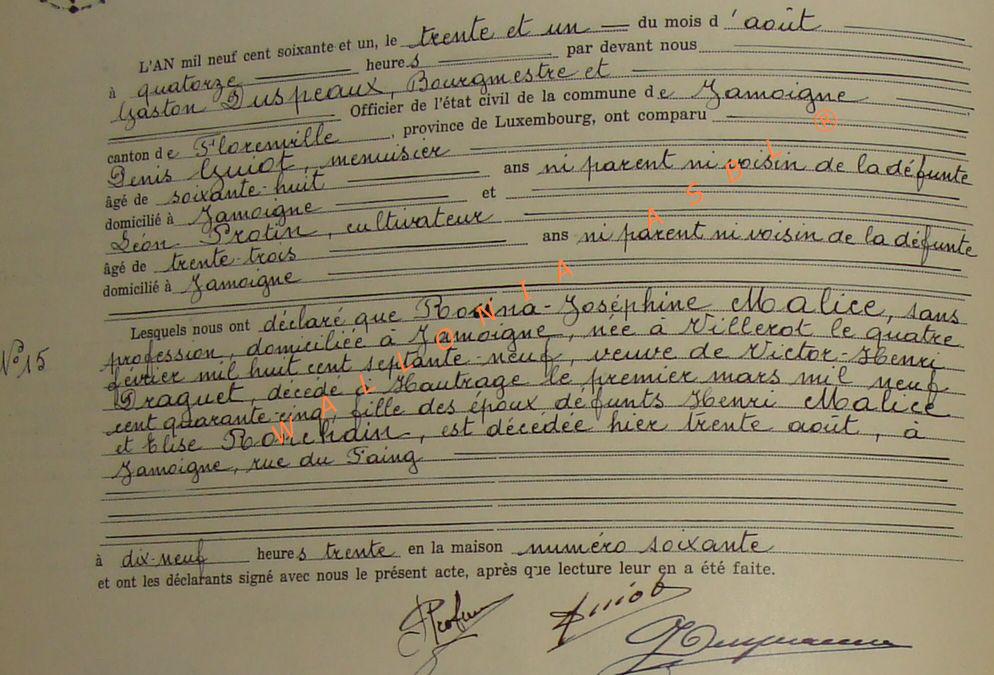 L'AN mil neuf cent soixante et un, le trente et un du mois d'août
à quatorze heures par devant nous
Gaston Duspeaux, Bourgmestre et
Officier de l'état civil de la commune de Jamoigne
canton de Florenville, province de Luxembourg, ont comparu
Denis Guiot, menuisier
âgé de soixante-huit ans ni parent ni voisin de la défunte
domicilié à Jamoigne et
Léon Protin, cultivateur
âgé de trente-trois ans ni parent ni voisin de la défunte
domicilié à Jamoigne
Lesquels nous ont déclaré que Rosina-Joséphine Malice, sans
profession, domiciliée à Jamoigne, née à Villerot le quatre
N° 15
février mil huit cent septante-neuf, veuve de Victor-Henri
Draguet, décédé à Hautrage le premier mars mil neuf
cent quarante-cinq, fille des époux défunts Henri Malice
et Elise, est décédée hier trente août, à
Jamoigne, rue du Faing
à dix-neuf heures trente en la maison numéro soixante
et ont les déclarants signé avec nous le présent acte, après que lecture leur en a été faite.
WALLONIA ASBL ®